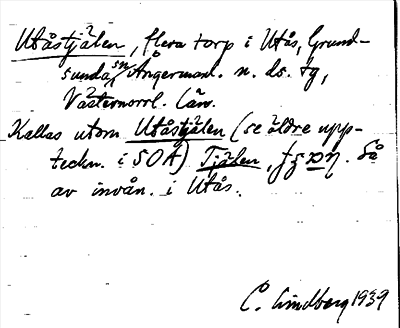 Utåstjälen, flera torp i Utås, Grund-
sunda sn Ångermanl. n. ds. tg,
Västernorrl. län.
Kallas utom Utåstjälen (se äldre upp-
teckn. i SOA) Tjälen, Så
av invån. i Utås.
C. Lindberg 1939